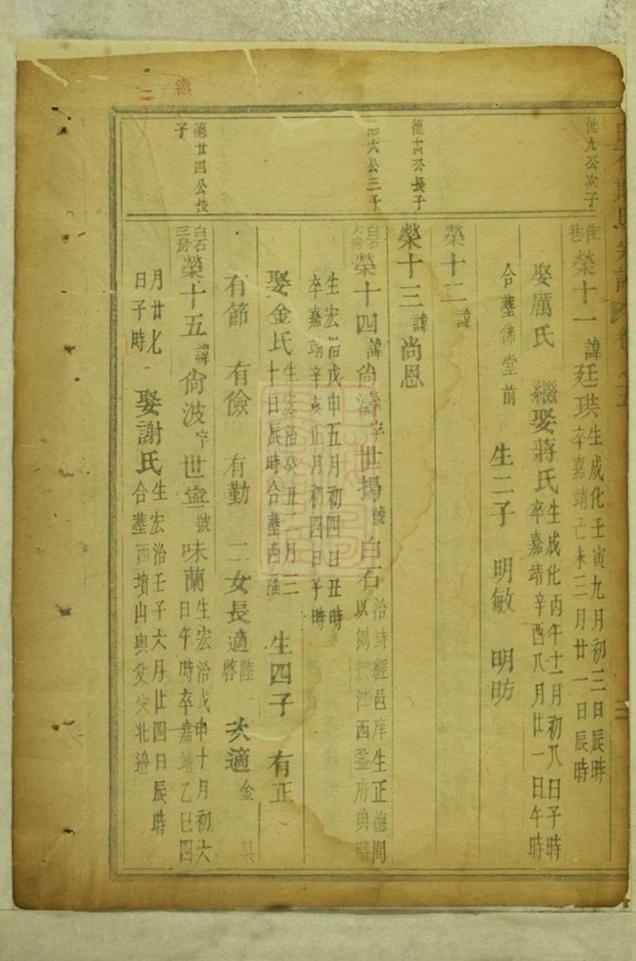 德九公次子
榮十一諱廷珙生成化壬寅九月初三日辰時
卒嘉靖己未三月廿一日辰時
娶厲氏 繼娶蔣氏生成化丙午十一月初八日子時
卒嘉靖辛酉八月廿一日午時
合墓佛堂前 生二子 明敏 明昉
榮十二諱
德十公長子
榮十三諱尚恩
六公三子
白石
榮十四諱尚濤字世揚號白石治詩經邑庠生正德間
以例授江西益府典膳
生宏治戊申五月初四日丑時
卒嘉靖辛亥正月初四日子時
娶金氏生宏治癸丑二月三
十日辰時合墓西 生四子 有正
有節 有儉 有勤 二女長適陸啓 次適金果
德廿四公長
子
白石
三房
榮十五諱尚波字世寧號味蘭生宏治戊申十月初六
日午時卒嘉靖乙巳四
月廿七
日子時 娶謝氏生宏治壬子六月廿四日辰時
合墓西墳山與父穴北邊